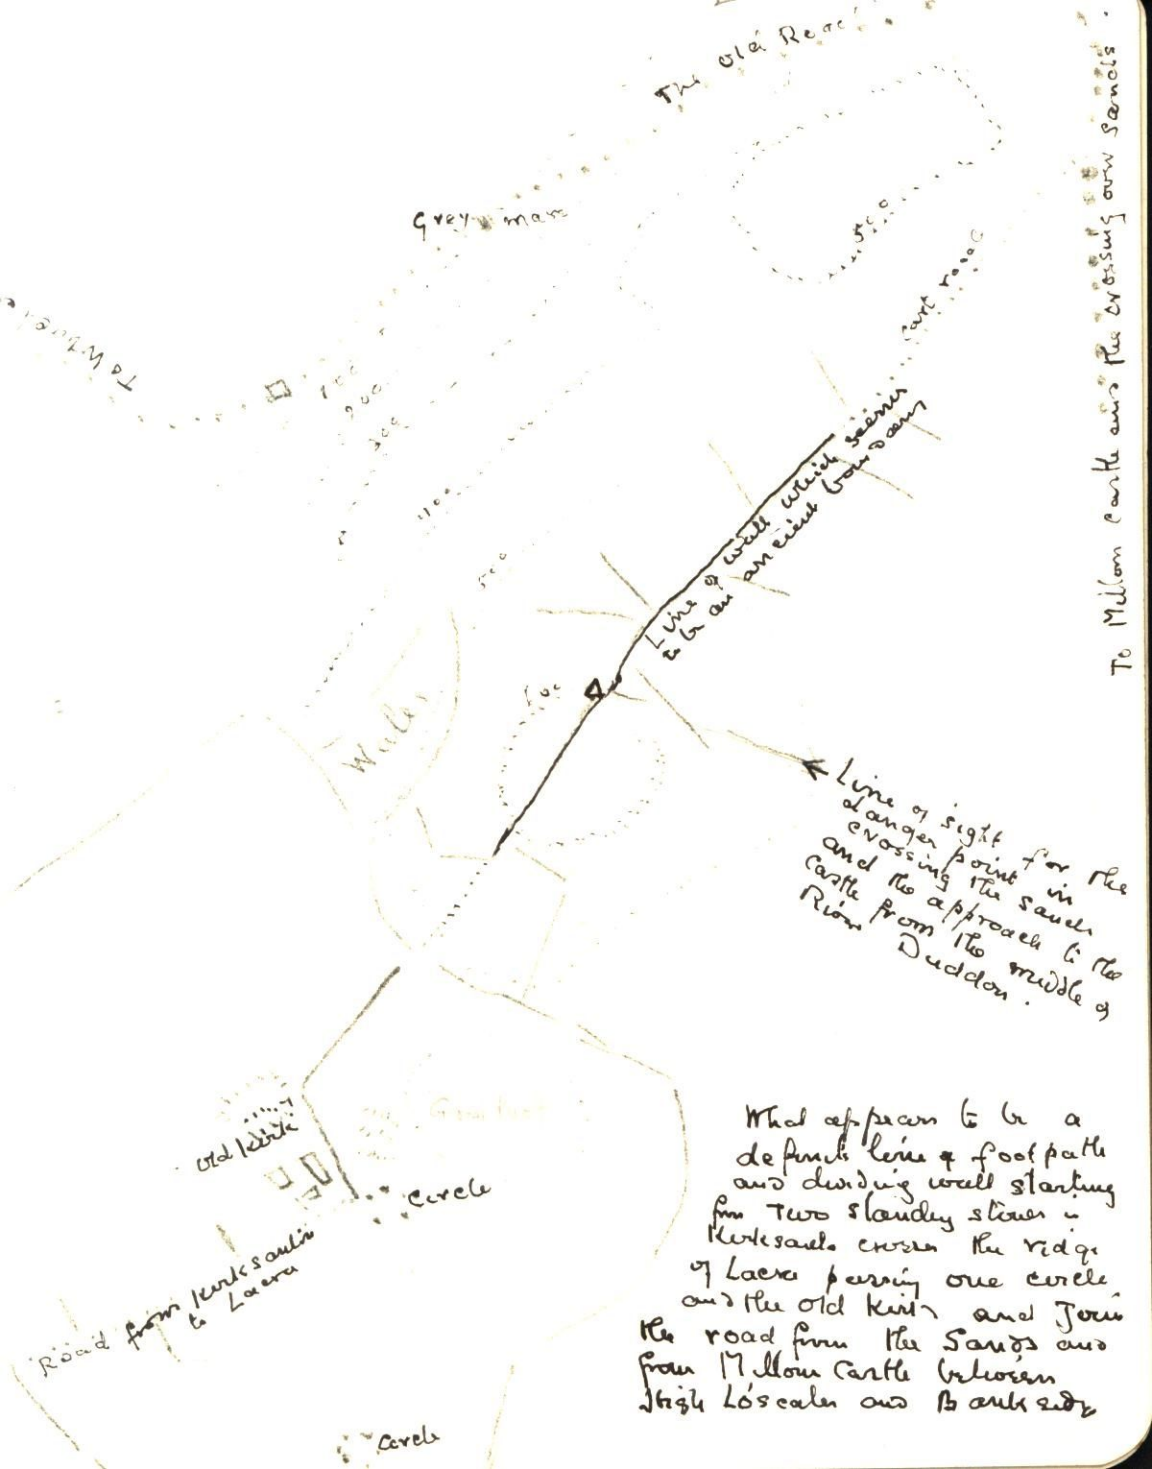 The Old Road
Grey mare
To
500
cart road
To Millom castle and the crossing over sands.
100
200
300
400
500
Line of wall which seems
to be an ancient boundary
600
Line of sight for the
danger point in
crossing the sands
and the approach to the
castle from the middle of
River Duddon.
old kirk
circle
Road from Kirksanton
to Lacra
circle
What appears to be a
definite line of footpath
and dividing wall starting
from Two standing stones in
Kirksanton crosses the ridge
of Lacra passing one circle
and the old Kirk and Joins
the road from the Sands and
from Millom Castle between
High Loscales and Bankside